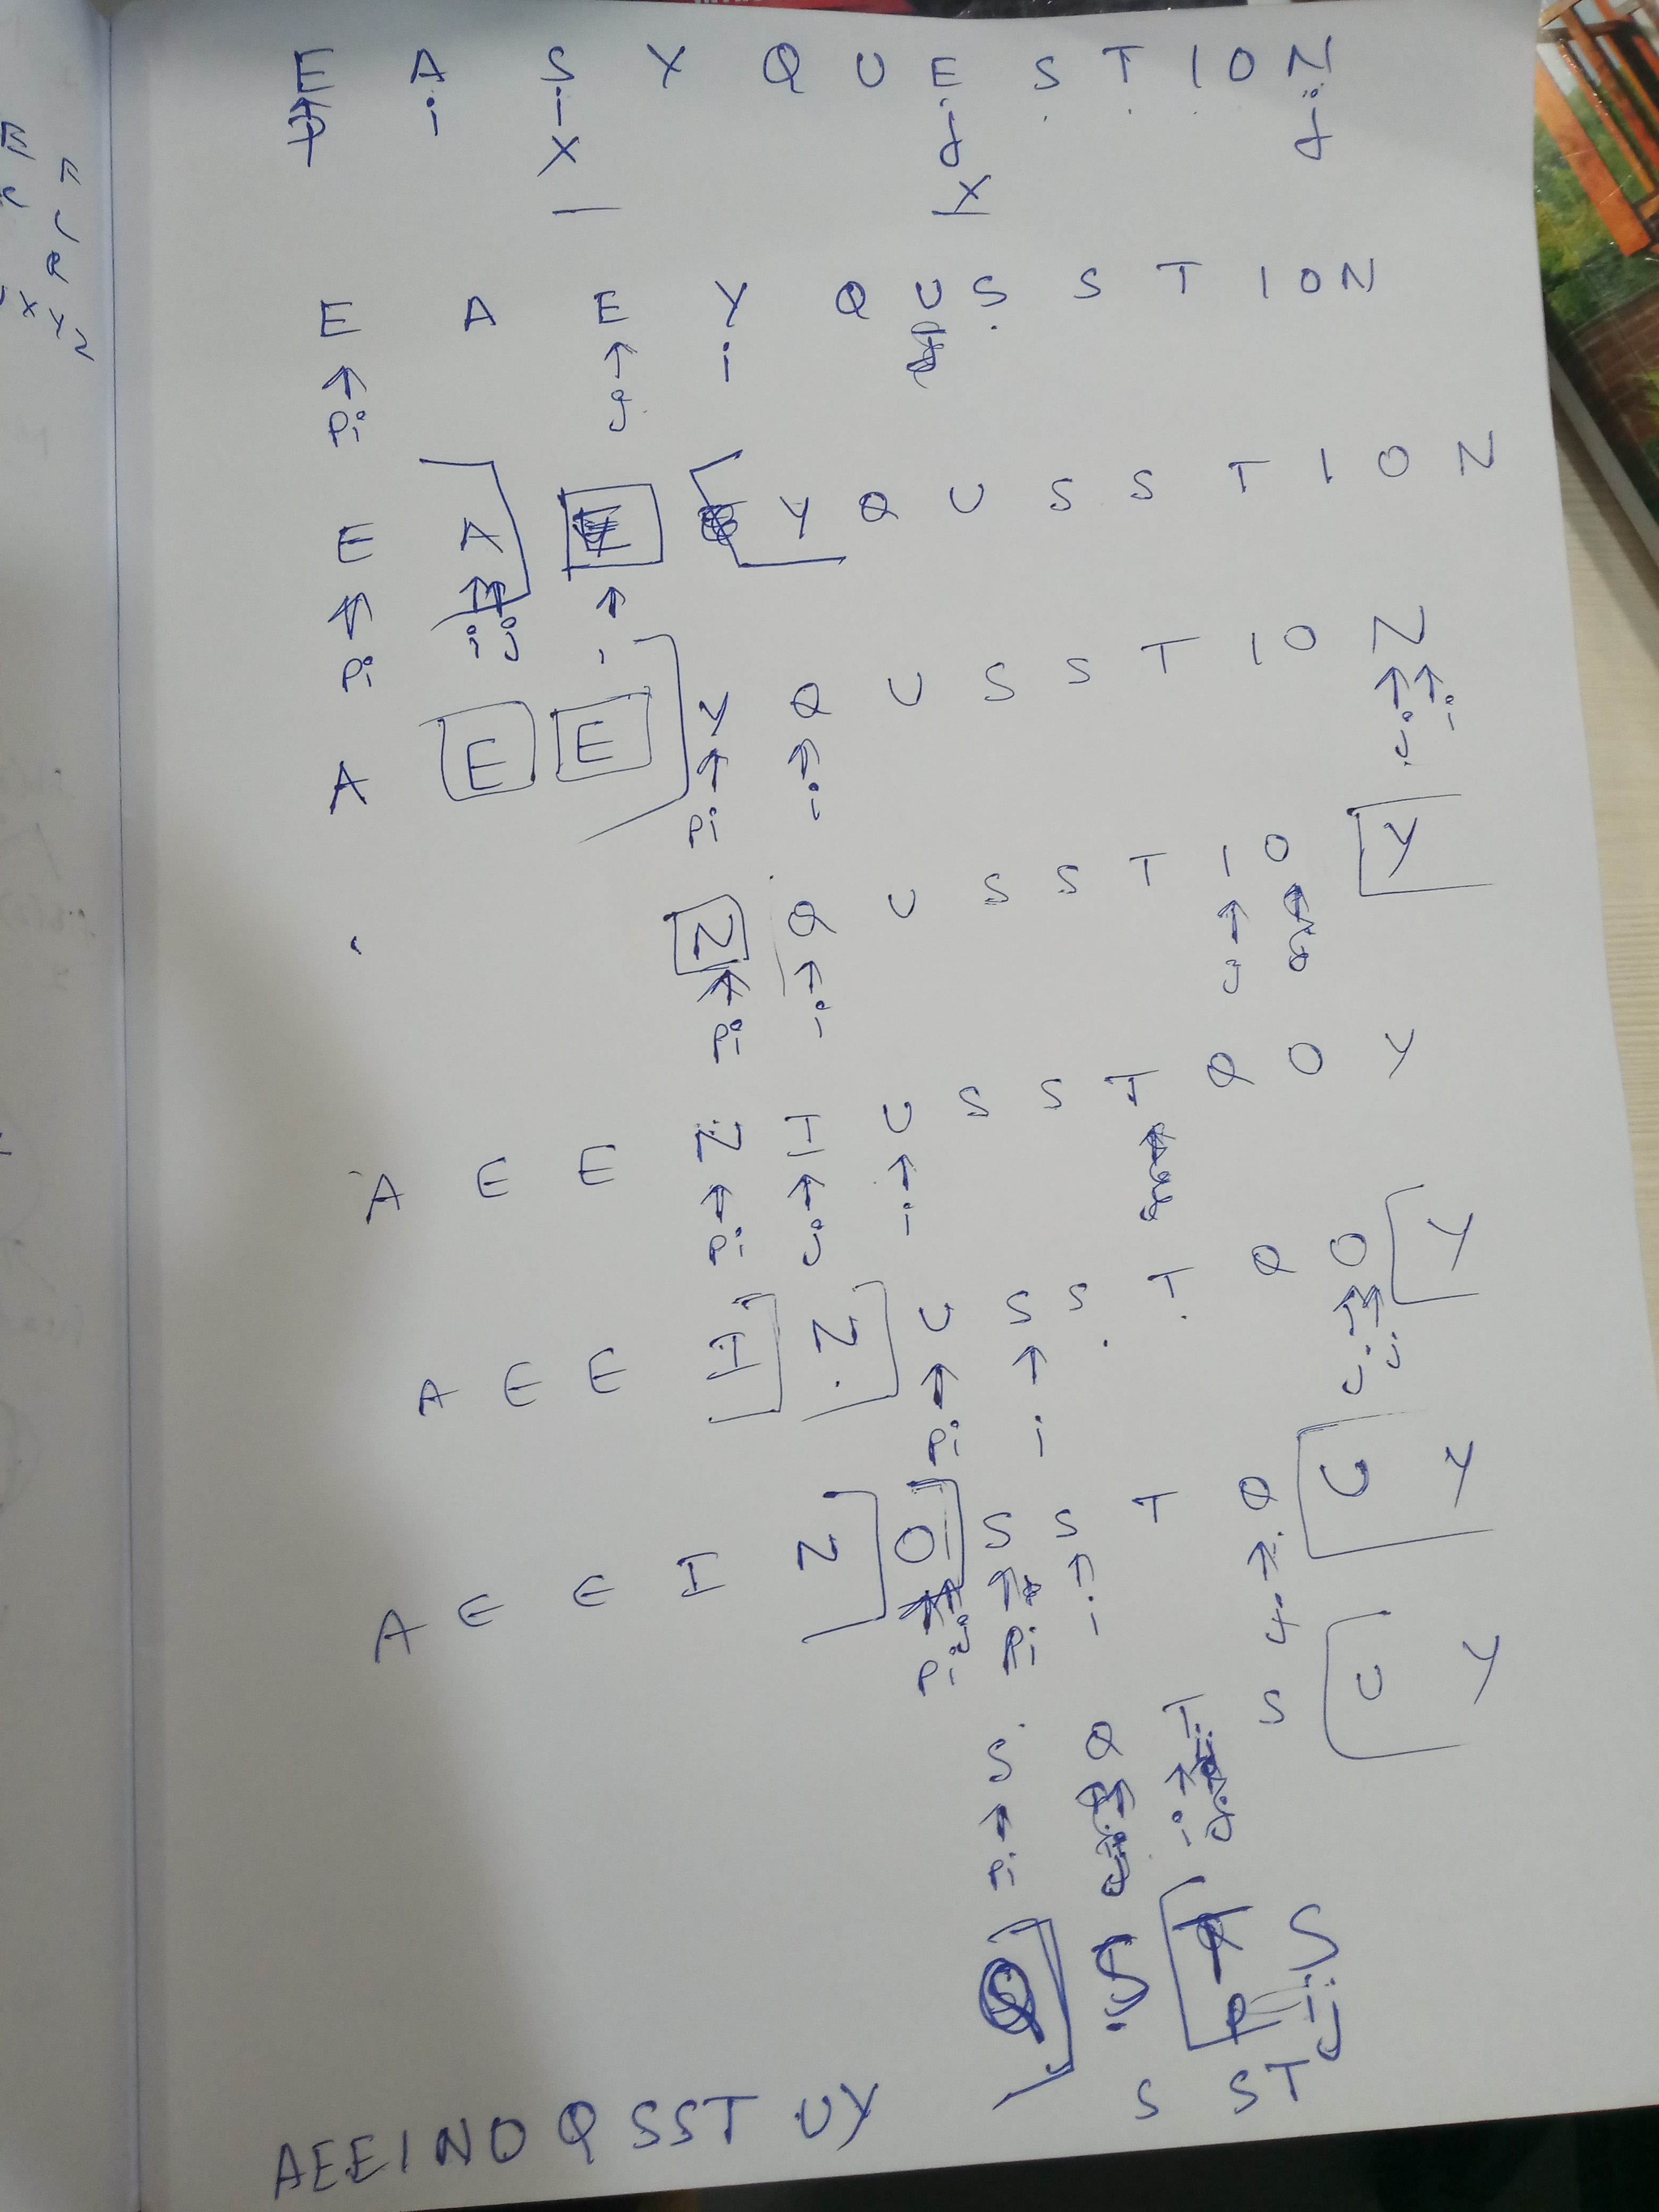 E A S Y Q U E S T I O N
P i i j j
X X
E A E Y Q U S S T I O N
Pi j i
E A E Y Q U S S T I O N
Pi i j i
A E E Y Q U S S T I O N
Pi i j i
N Q U S S T I O Y
Pi i j
A E E N I U S S T Q O Y
Pi j i
A E E I N U S S T Q O Y
Pi i j i
A E E I N O S S T Q U Y
Pi j Pi i j
S Q T S U Y
Pi i j
Q S T S
P i j
S S T
A E E I N O Q S S T U Y